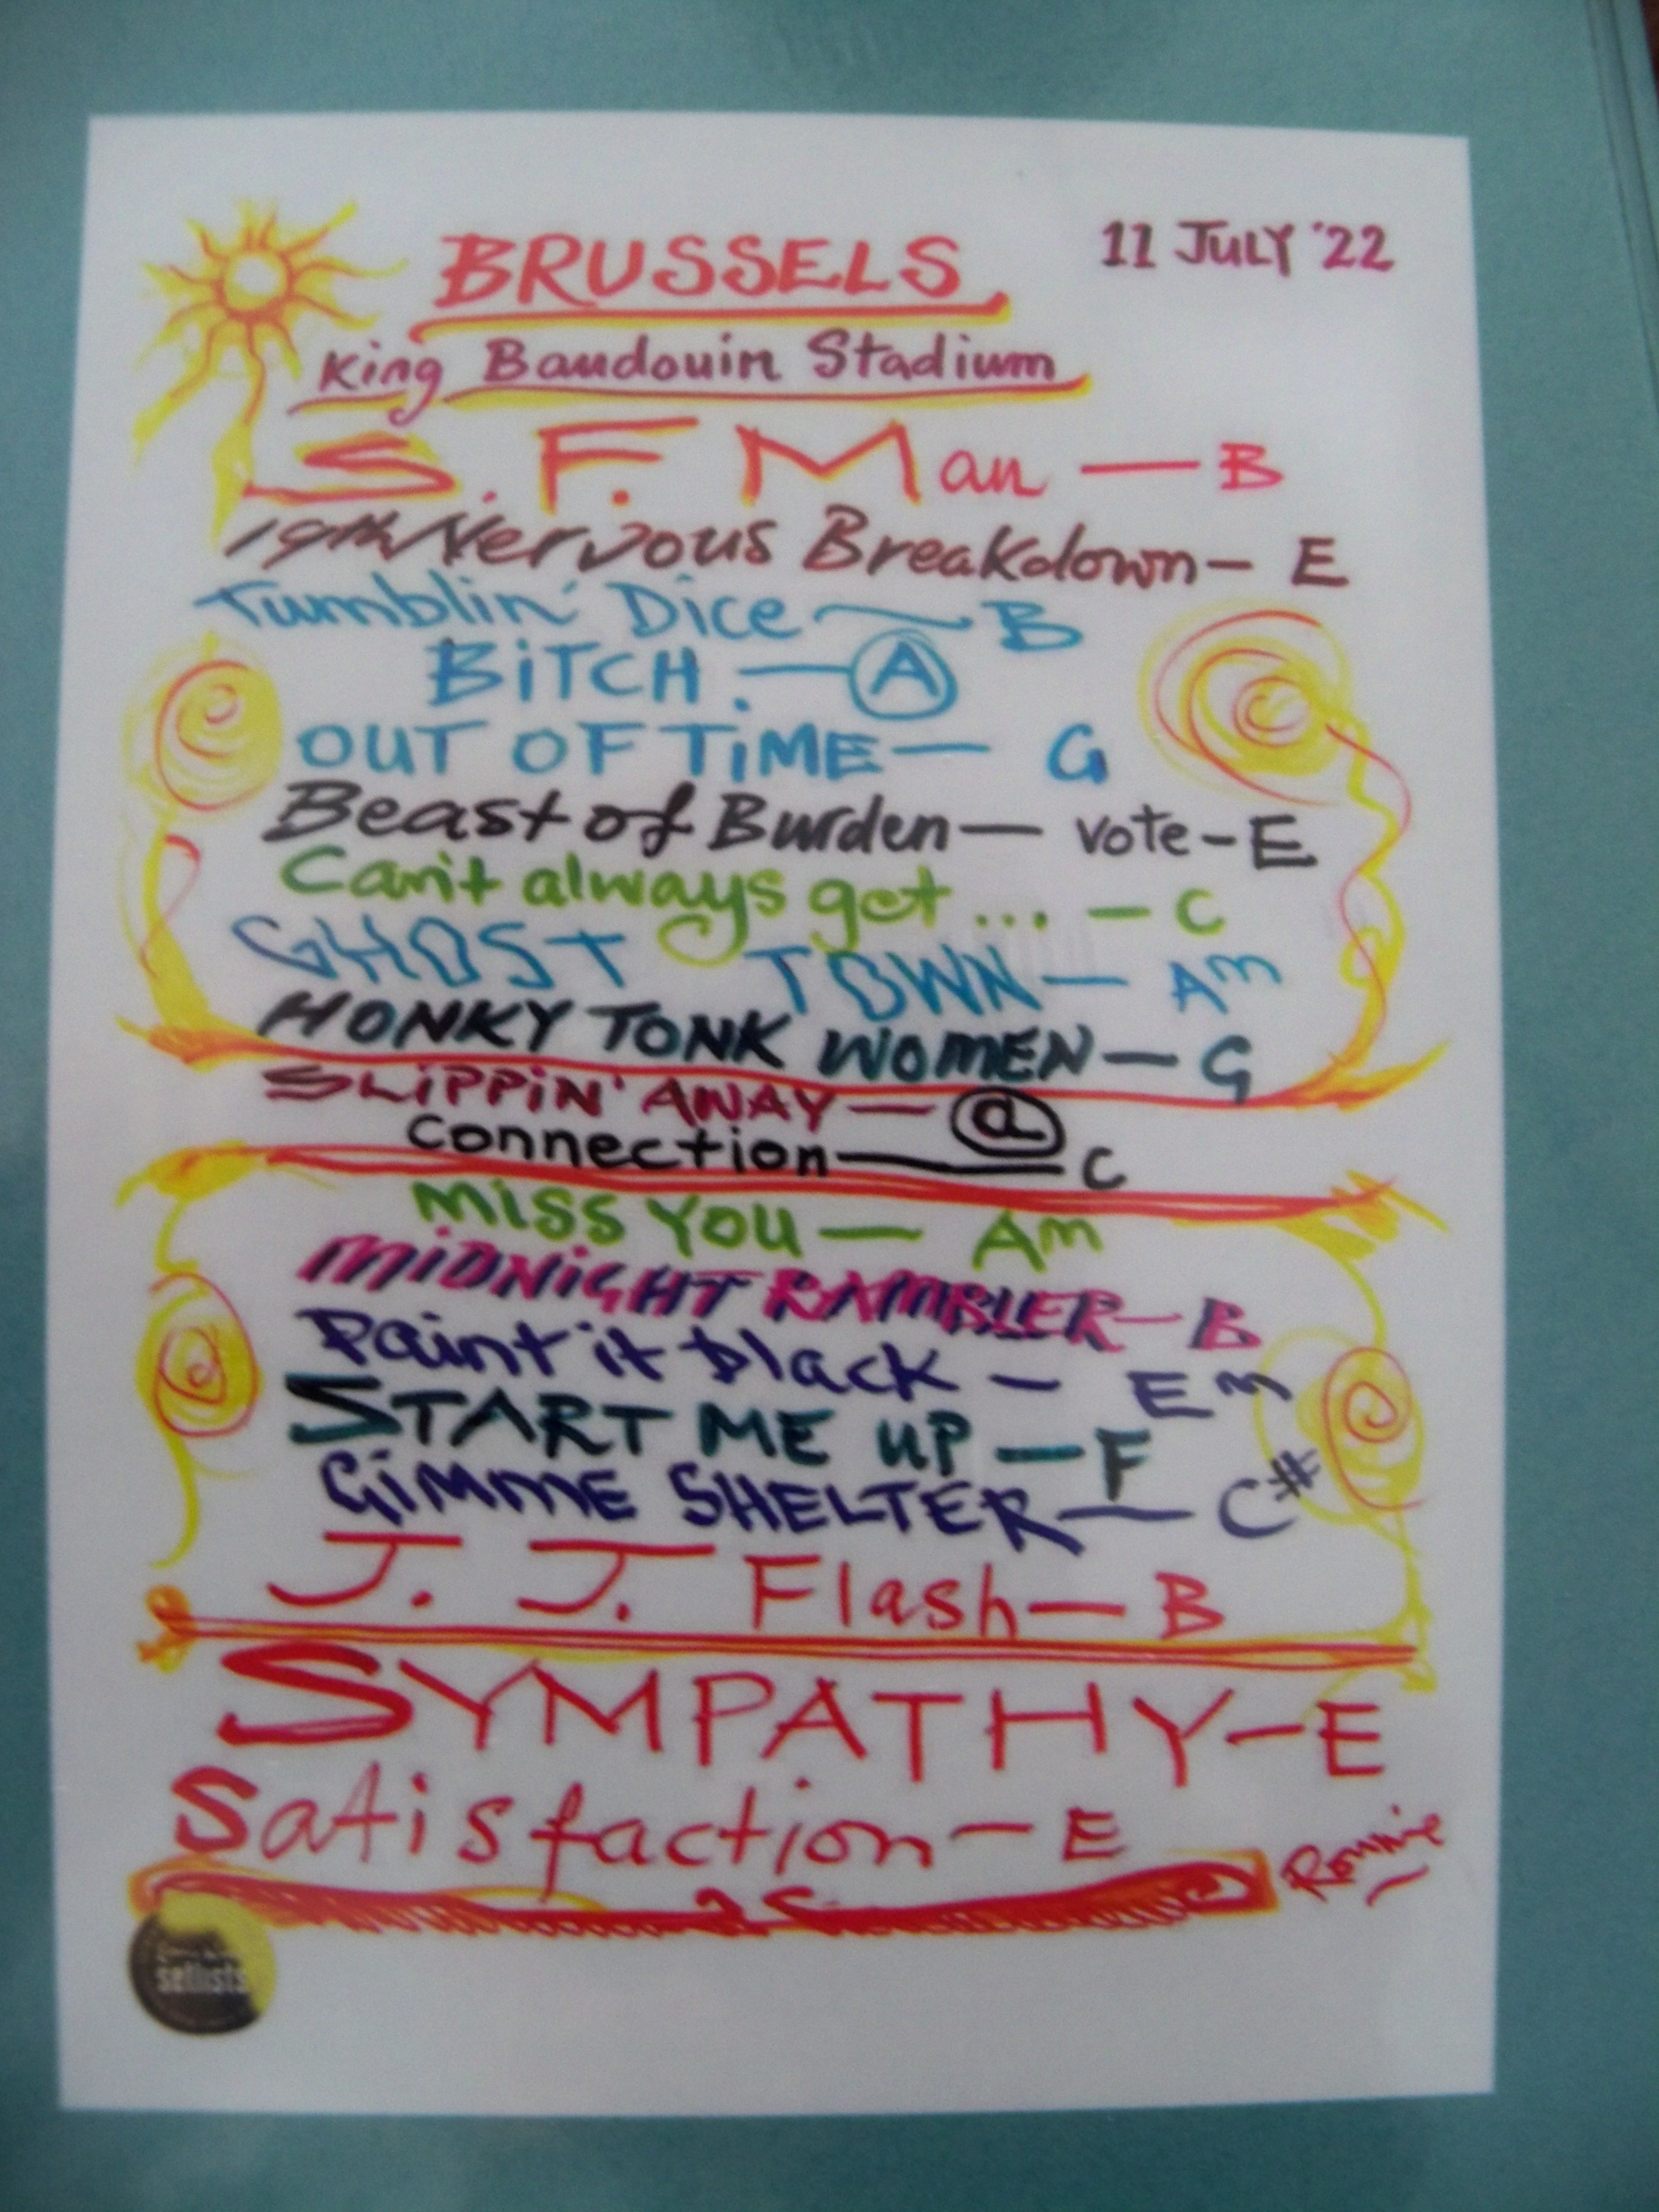 BRUSSELS
11 JULY '22
King Baudouin Stadium
S. F. Man — B
19th Nervous Breakdown — E
Tumblin' Dice — B
BiTCH. — A
OUT OF TiME — G
Beast of Burden — vote - E
Can't always get ... — C
GHOST TOWN — Am
HONKY TONK WOMEN — G
SLiPPiN' AWAY — a
Connection — C
MiSS YOU — Am
MiDNiGHT RAMBLER — B
Paint it black — Em
START ME UP — F
GiMME SHELTER — C#
J. J. Flash — B
SYMPATHY - E
Satisfaction - E
Ronnie
setlists